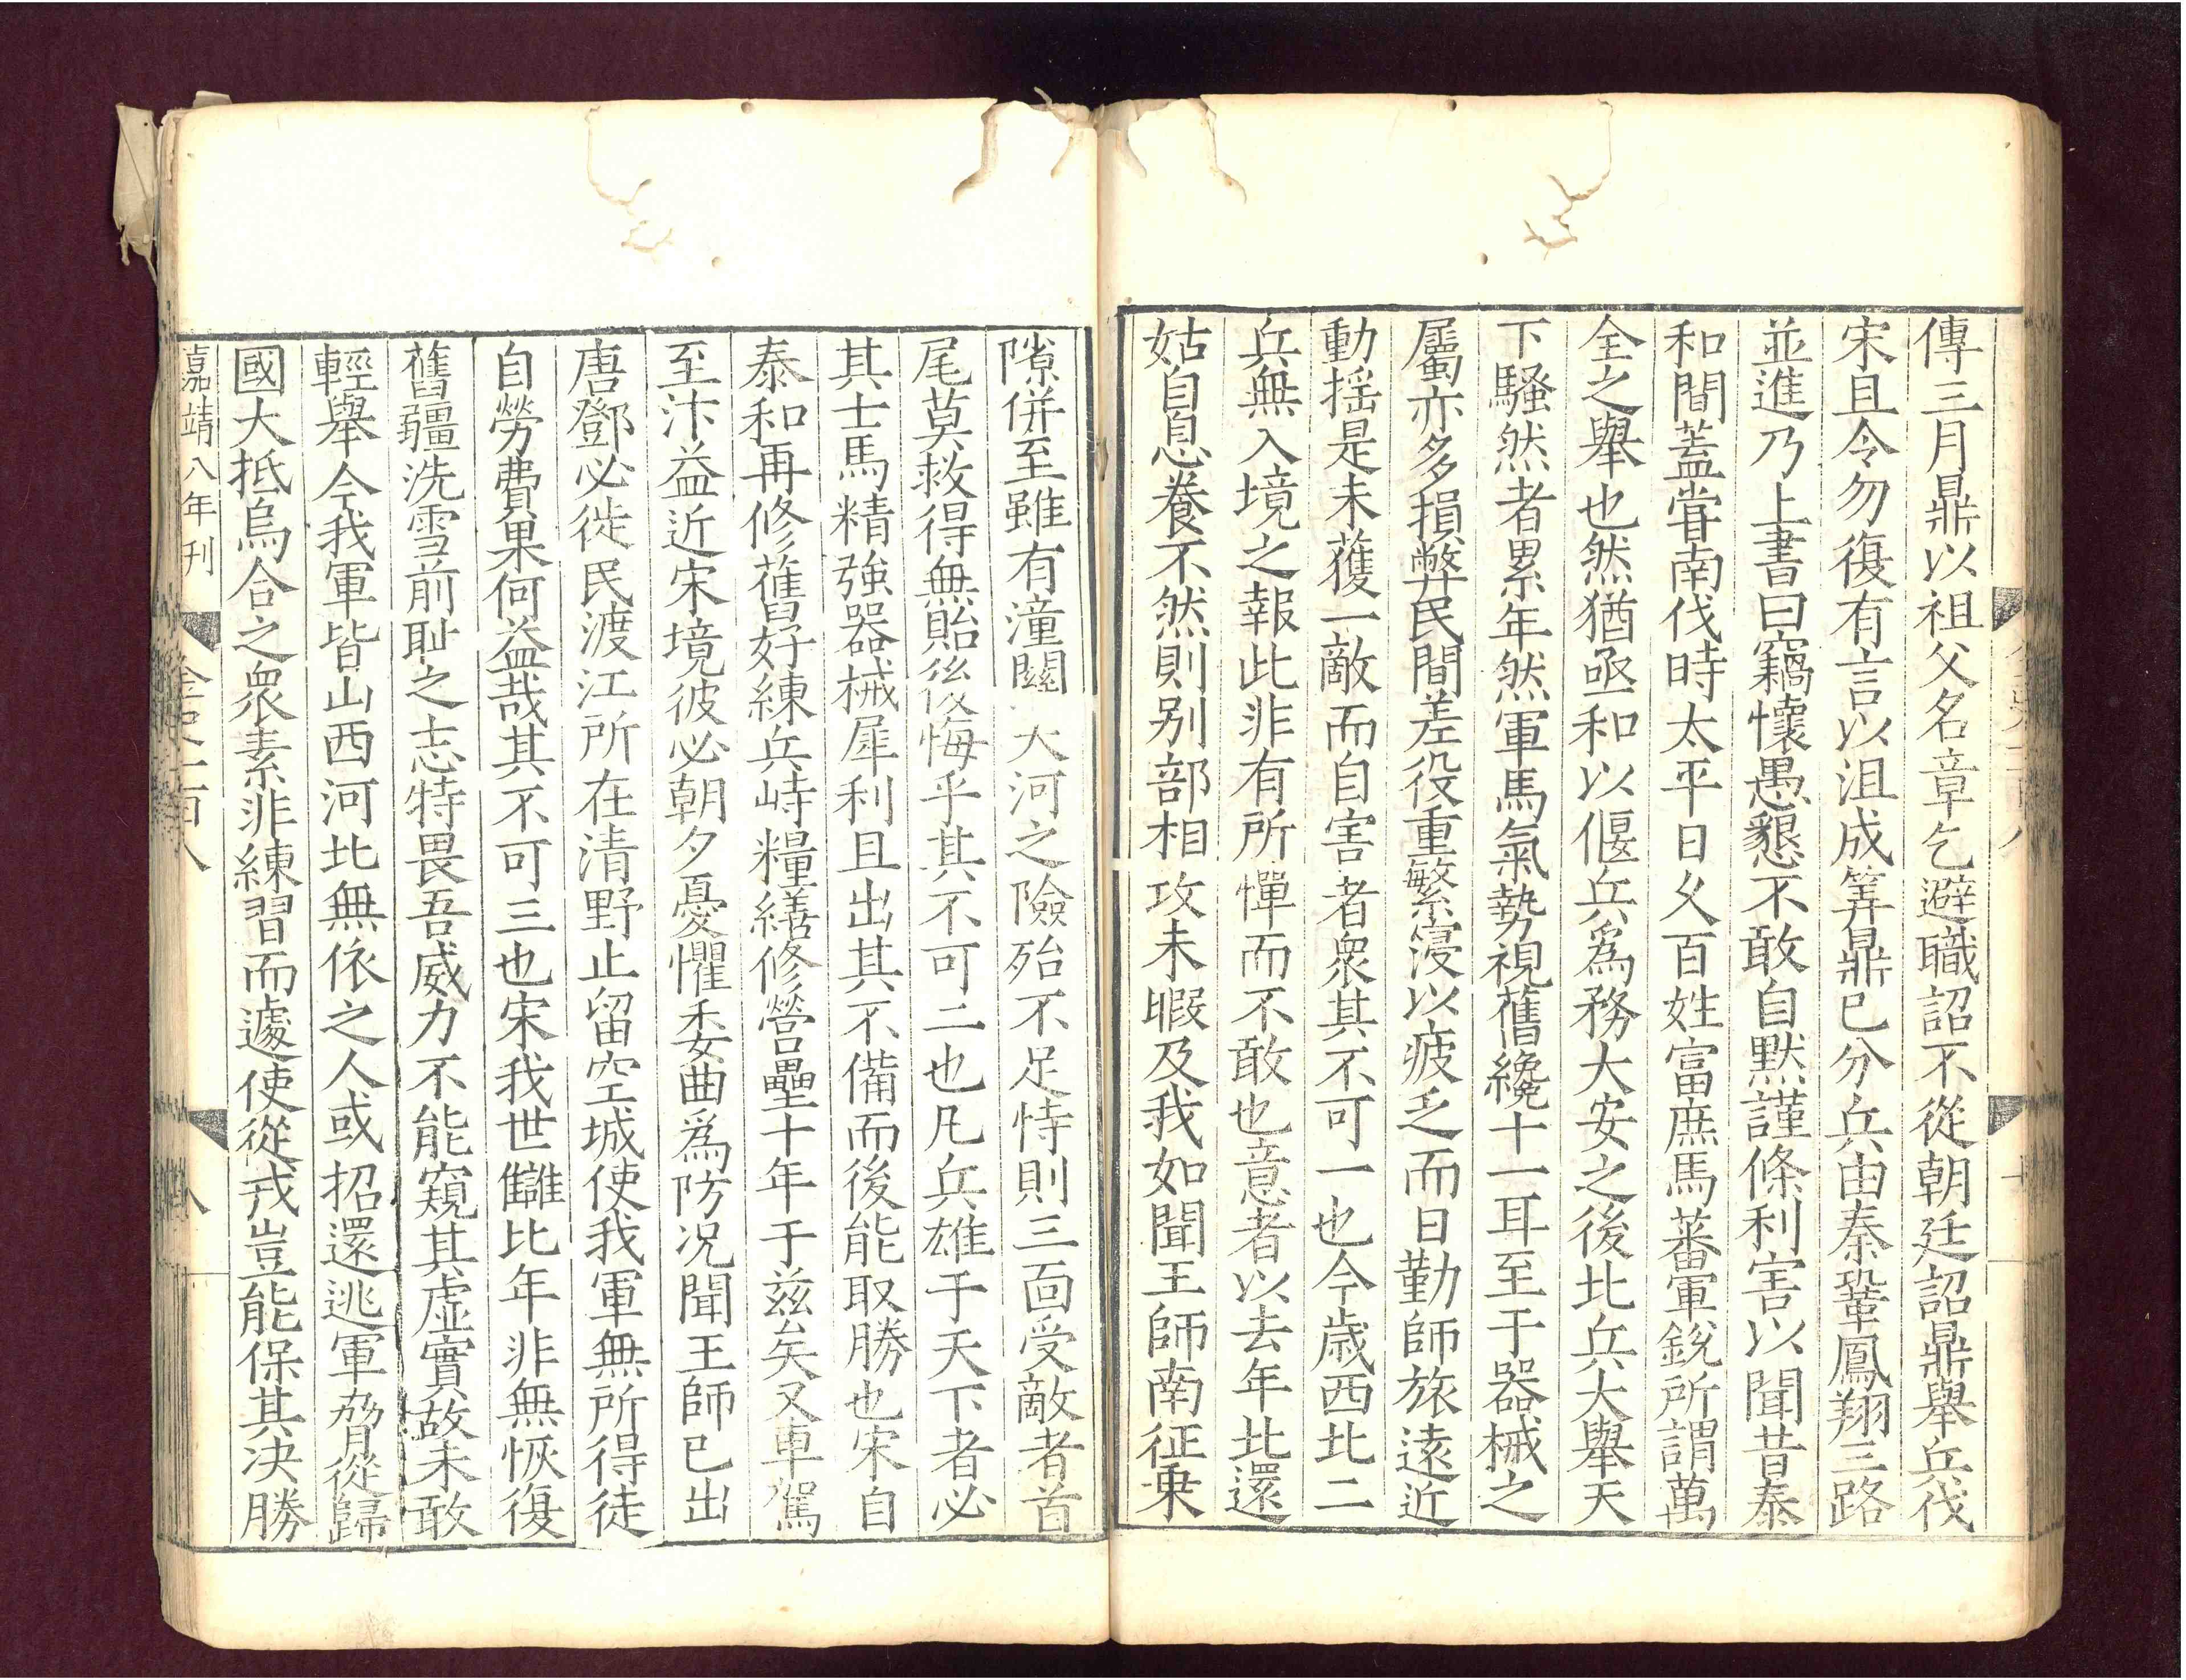 傳三月鼎以祖父名章乞避職詔不從朝廷詔鼎舉兵伐
宋且令勿復有言以沮成筭鼎已分兵由秦鞏鳳翔三路
並進乃上書曰竊懷愚懇不敢自默謹條利害以聞昔泰
和間蓋甞南伐時太平日久百姓富庶馬蕃軍銳所謂萬
全之舉也然猶亟和以偃兵爲務大安之後北兵大舉天
下騷然者累年然軍馬氣勢視舊纔十一耳至于器械之
屬亦多損弊民間差役重繁寖以疲乏而日勤師旅遠近
動揺是未獲一敵而自害者衆其不可一也今歳西北二
兵無入境之報此非有所憚而不敢也意者以去年北還
姑自息養不然則别部相攻未暇及我如聞王師南征乗
隙併至雖有潼關大河之險殆不足恃則三面受敵者首
尾莫救得無貽後悔乎其不可二也凡兵雄于天下者必
其士馬精強器械犀利且出其不備而後能取勝也宋自
泰和再修舊好練兵峙糧繕修營壘十年于兹矣又車駕
至汴益近宋境彼必朝夕憂懼委曲爲防况聞王師已出
唐鄧必徙民渡江所在清野止留空城使我軍無所得徒
自勞費果何益哉其不可三也宋我世讎比年非無恢復
舊疆洗雪前耻之志特畏吾威力不能窺其虚實故未敢
輕舉今我軍皆山西河北無依之人或招還逃軍脅從歸
國大抵烏合之衆素非練習而遽使從戎豈能保其决勝
嘉靖八年刊
金史一百八
八